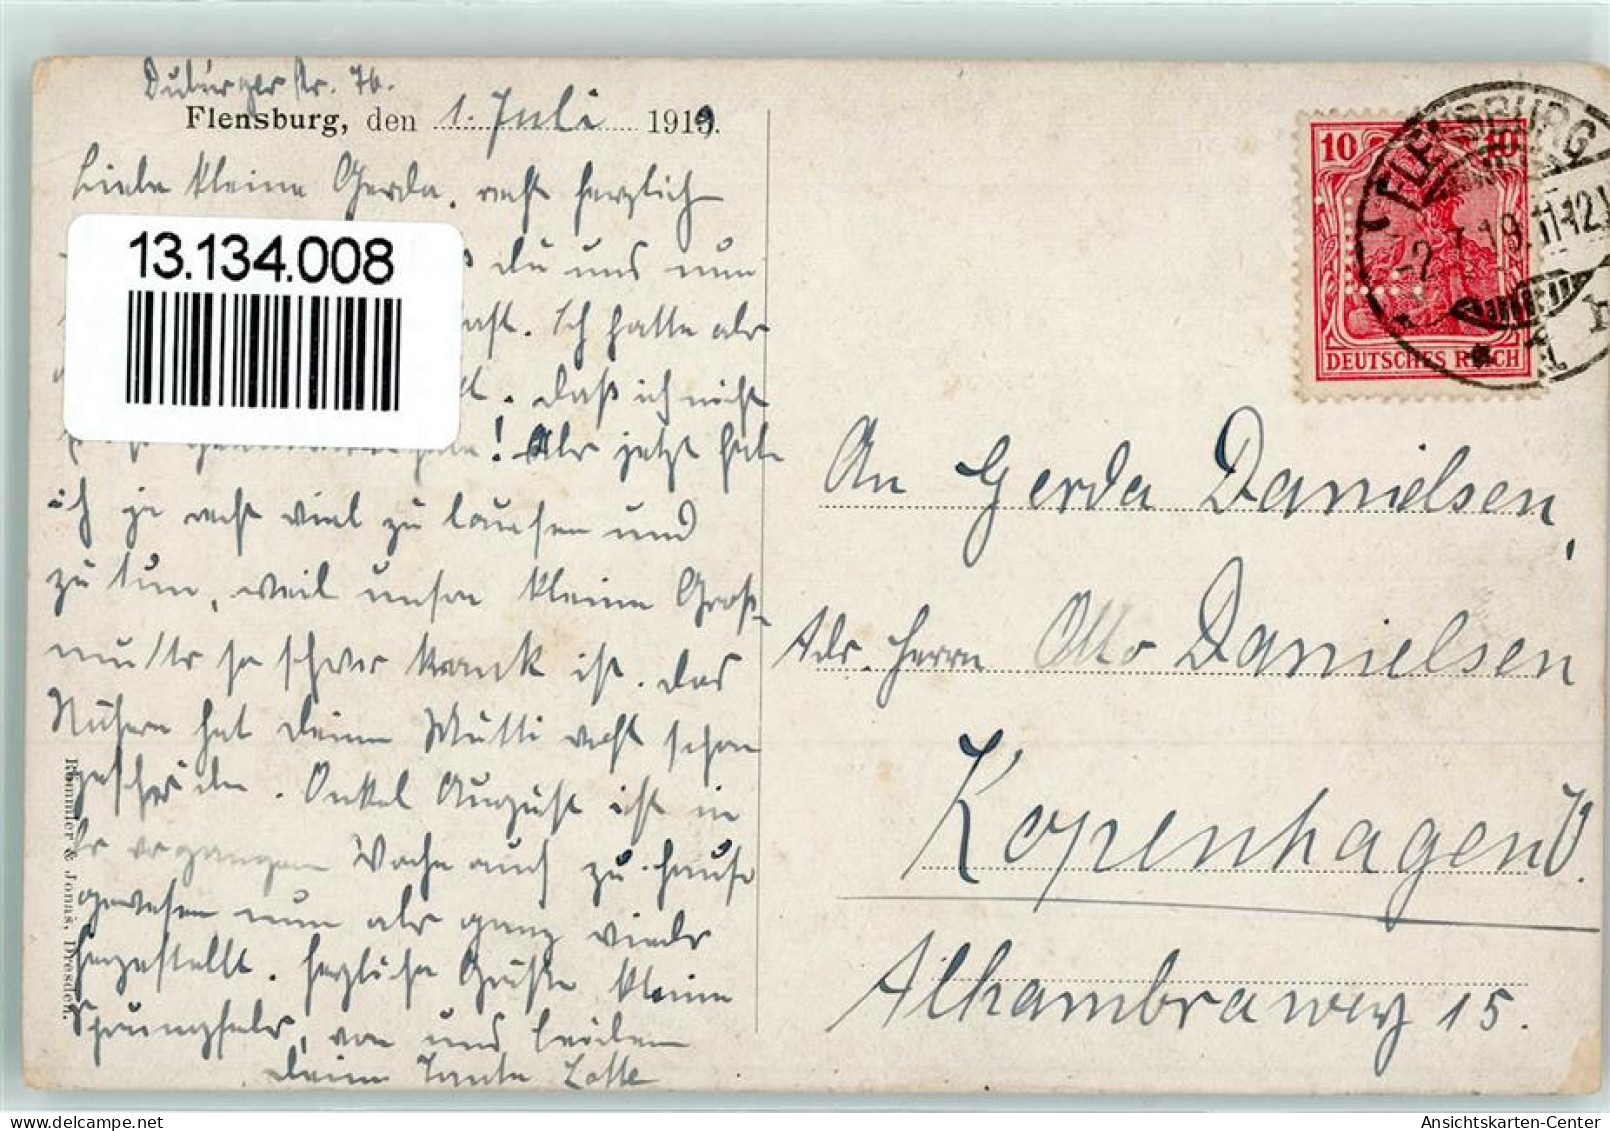 Duburger Str. 76.
Flensburg, den 1. Juli 1919.
Liebe kleine Gerda, recht herzlich
du uns nun
Ich hatte als
daß ich nicht
! Als jetzt habe
ich ja recht viel zu laufen und
zu tun, weil unsre kleine Groß-
mutter so schwer krank ist. Das
Nähere hat deine Mutti recht schon
geschrieben. Onkel August ist in
vergangenen Woche auch zu Hause
gewesen nun als ganz wieder
hergestellt. Herzliche Grüße kleine
von und beiden
deine Tante Lotte
Römmler & Jonas, Dresden.
13.134.008
10 10
DEUTSCHES REICH
FLENSBURG
-2.7.19.11-12V
* 1
An Gerda Danielsen,
Adr. Herrn Otto Danielsen
Kopenhagen V.
Alhambravej 15.
Ansichtskarten-Center